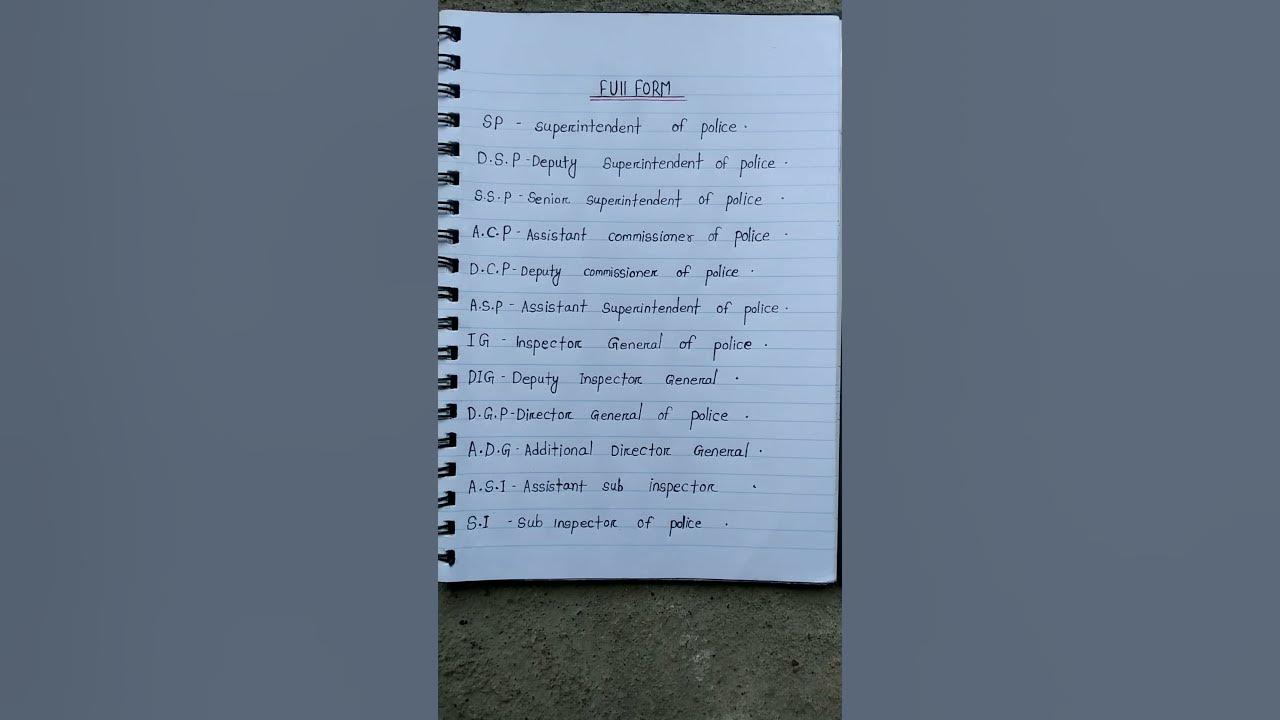 FUll FORM
SP - superintendent of police .
D.S.P - Deputy Superintendent of police .
S.S.P - Senior superintendent of police .
A.C.P - Assistant commissioner of police .
D.C.P - Deputy commissioner of police .
A.S.P - Assistant Superintendent of police .
IG - Inspector General of police .
DIG - Deputy Inspector General .
D.G.P - Director General of police .
A.D.G - Additional Director General .
A.S.I - Assistant sub inspector .
S.I - Sub inspector of police .